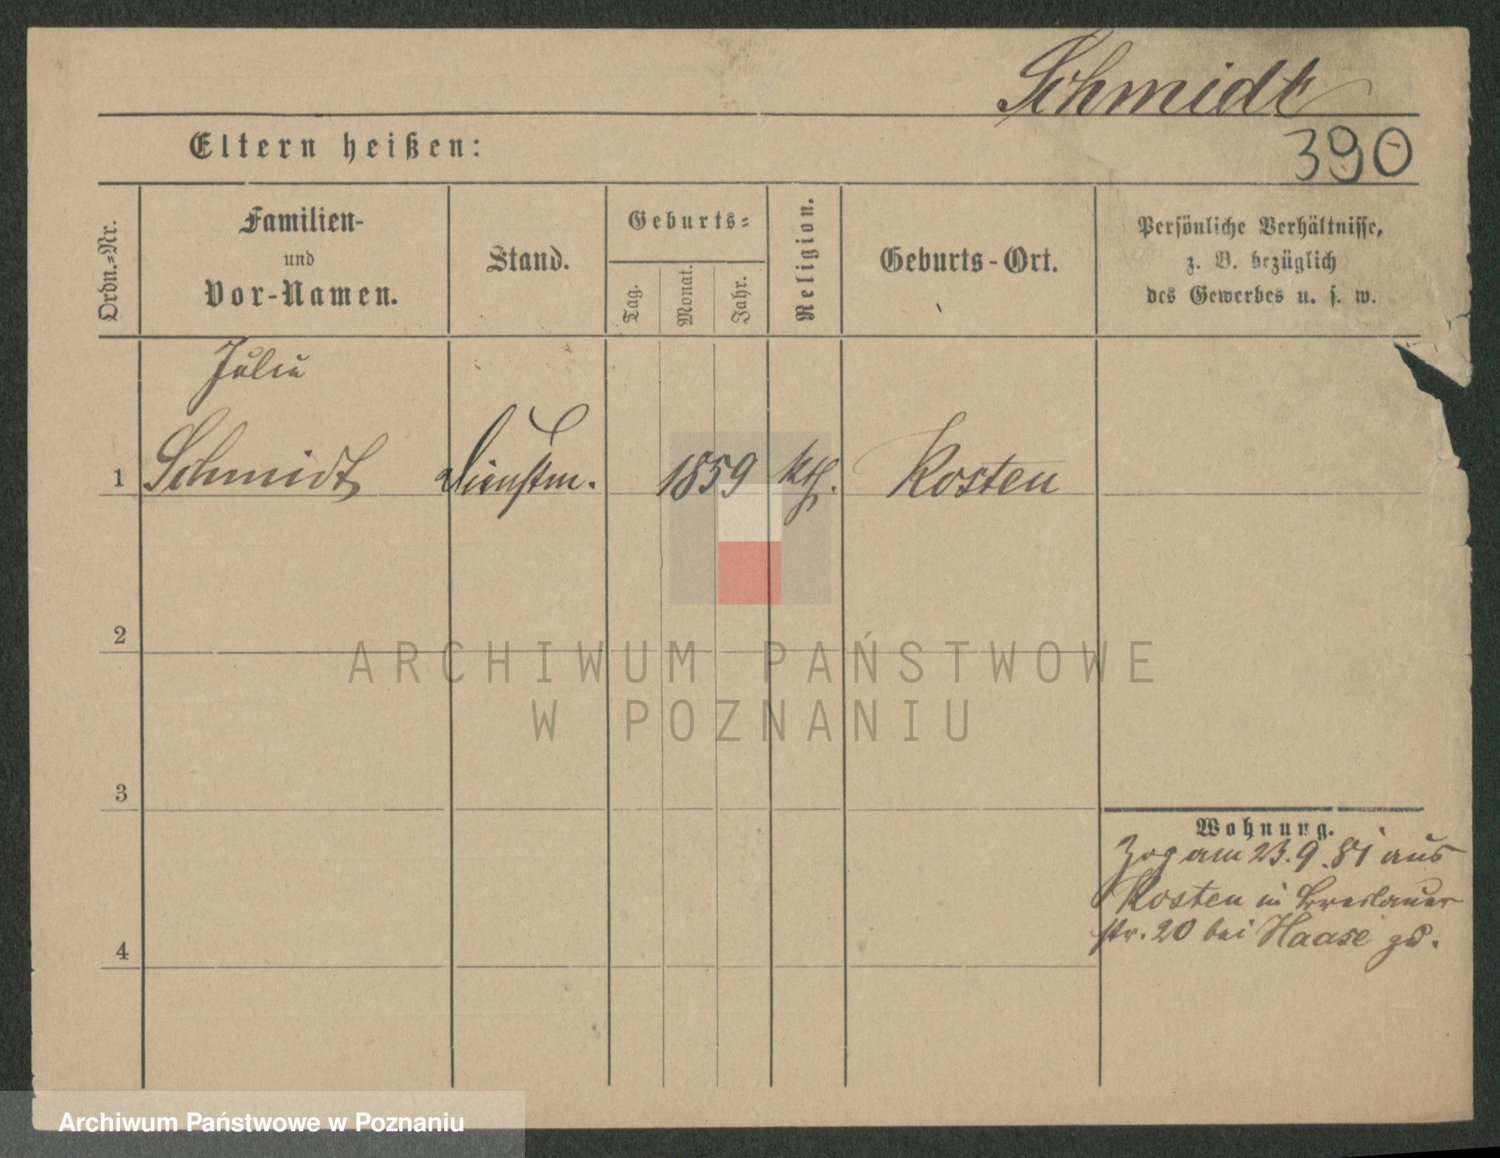 Schmidt
Eltern heißen:
390
Ordn.=Nr.
Familien-
und
Vor-Namen.
Stand.
Geburts=
Tag.
Monat.
Jahr.
Religion.
Geburts-Ort.
Persönliche Verhältnisse,
z. B. bezüglich
des Gewerbes u. s. w.
1
Schmidt
Dienstm.
1859
kth.
Kosten
2
ARCHIWUM PAŃSTWOWE
W POZNANIU
3
4
Wohnung.
Zog am 23.9.81 aus
Kosten in Breslauer
str. 20 bei Haase
Archiwum Państwowe w Poznaniu